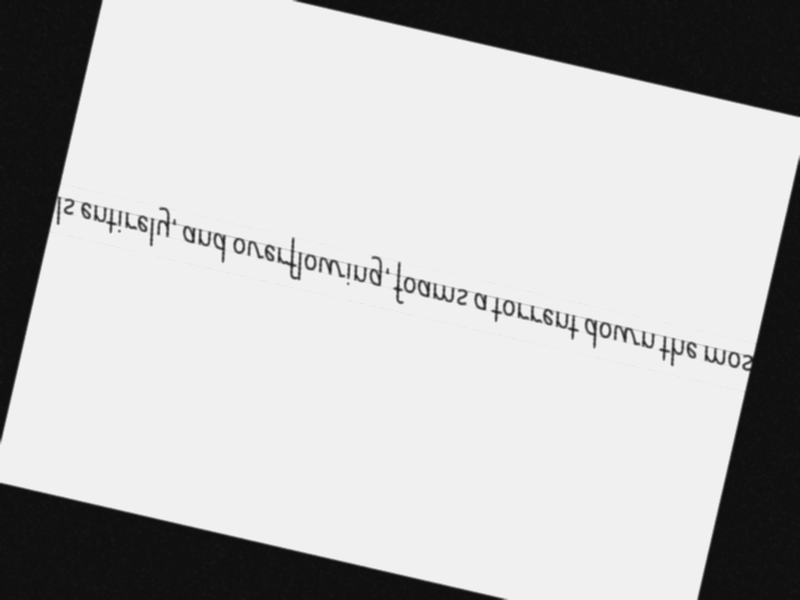 ls entirely, and overflowing, foams a torrent down the mos